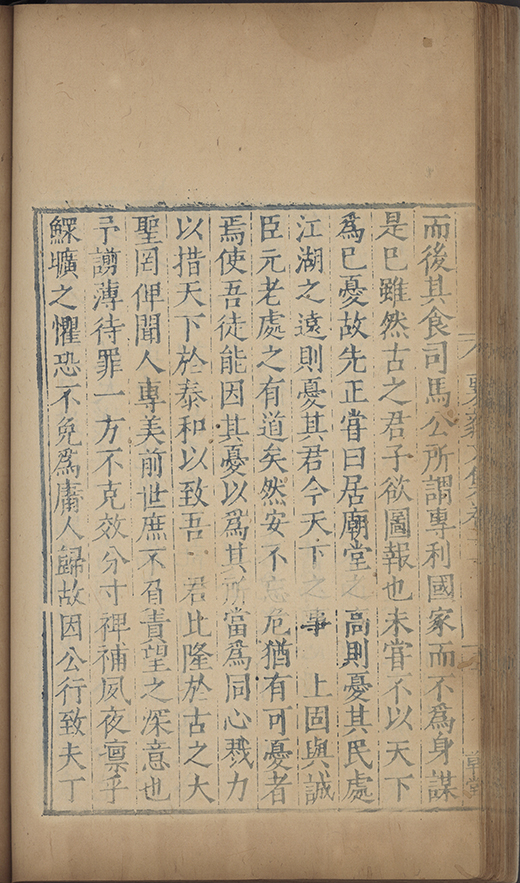 而後其食司馬公所謂專利國家而不爲身謀
是已雖然古之君子欲圖報也未嘗不以天下
爲已憂故先正嘗曰居廟堂之高則憂其民處
江湖之遠則憂其君今天下之事 上固與誠
臣元老處之有道矣然安不忘危猶有可憂者
焉使吾徒能因其憂以爲其所當爲同心戮力
以措天下於泰和以致吾 君比隆於古之大
聖罔俾聞人專美前世庶不負責望之深意也
予謭薄待罪一方不克效分寸裨補夙夜凛乎
鰥曠之懼恐不免爲庸人歸故因公行致夫丁